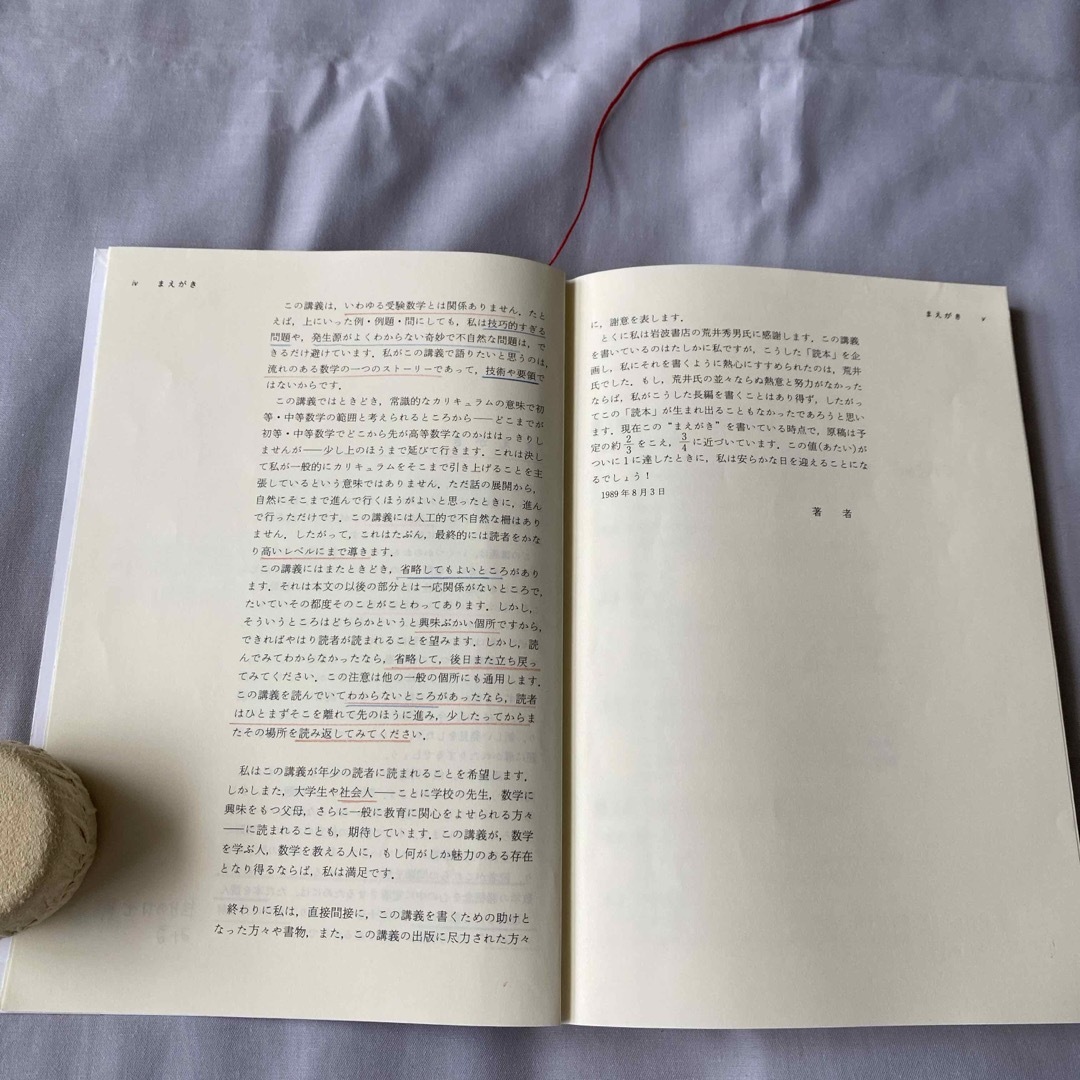 iv まえがき
この講義は，いわゆる受験数学とは関係ありません．たと
えば，上にいった例・例題・問にしても，私は技巧的すぎる
問題や，発生源がよくわからない奇妙で不自然な問題は，で
きるだけ避けています．私がこの講義で語りたいと思うのは，
流れのある数学の一つのストーリーであって，技術や要領で
はないからです．
この講義ではときどき，常識的なカリキュラムの意味で初
等・中等数学の範囲と考えられるところから——どこまでが
初等・中等数学でどこから先が高等数学なのかははっきりし
ませんが——少し上のほうまで延びて行きます．これは決し
て私が一般的にカリキュラムをそこまで引き上げることを主
張しているという意味ではありません．ただ話の展開から，
自然にそこまで進んで行くほうがよいと思ったときに，進ん
で行っただけです．この講義には人工的で不自然な柵はあり
ません．したがって，これはたぶん，最終的には読者をかな
り高いレベルにまで導きます．
この講義にはまたときどき，省略してもよいところがあり
ます．それは本文の以後の部分とは一応関係がないところで，
たいていその都度そのことがことわってあります．しかし，
そういうところはどちらかというと興味ぶかい個所ですから，
できればやはり読者が読まれることを望みます．しかし，読
んでみてわからなかったなら，省略して，後日また立ち戻っ
てみてください．この注意は他の一般の個所にも通用します．
この講義を読んでいてわからないところがあったなら，読者
はひとまずそこを離れて先のほうに進み，少したってからま
たその場所を読み返してみてください．
私はこの講義が年少の読者に読まれることを希望します．
しかしまた，大学生や社会人——ことに学校の先生，数学に
興味をもつ父母，さらに一般に教育に関心をよせられる方々
——に読まれることも，期待しています．この講義が，数学
を学ぶ人，数学を教える人に，もし何がしか魅力のある存在
となり得るならば，私は満足です．
終わりに私は，直接間接に，この講義を書くための助けと
なった方々や書物，また，この講義の出版に尽力された方々
まえがき v
に，謝意を表します．
とくに私は岩波書店の荒井秀男氏に感謝します．この講義
を書いているのはたしかに私ですが，こうした「読本」を企
画し，私にそれを書くように熱心にすすめられたのは，荒井
氏でした．もし，荒井氏の並々ならぬ熱意と努力がなかった
ならば，私がこうした長編を書くことはあり得ず，したがっ
てこの「読本」が生まれ出ることもなかったであろうと思い
ます．現在この“まえがき”を書いている時点で，原稿は予
定の約 2/3 をこえ，3/4 に近づいています．この値(あたい)が
ついに1に達したときに，私は安らかな日を迎えることにな
るでしょう！
1989年8月3日
著 者